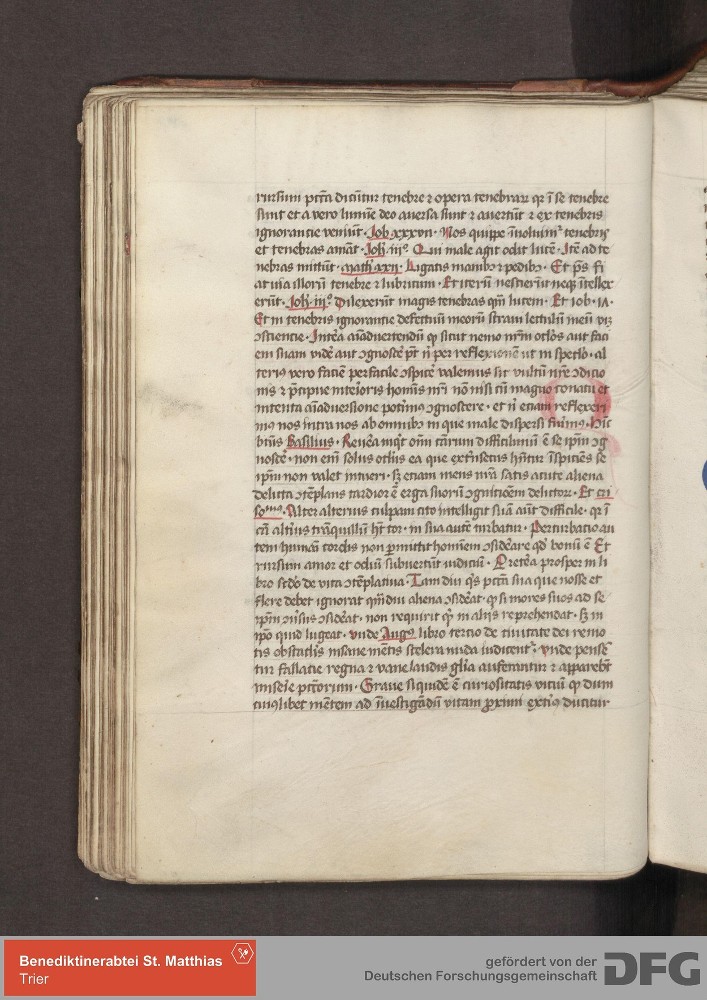 rursum pctā dicūtur tenebre ⁊ opera tenebraꝝ qꝛ ī se tenebre
sunt et a vero lumīe deo auersa sunt ⁊ auertūt ⁊ ex tenebris
ignorantie veniūt · Job xxxvii · Nos quipe īuoluimꝰ tenebris
et tenebras amāt · Joh · iijº · Qui male agit odit lucē · Itē ad te
nebras mittūt · Math xxii · Ligatis manibꝫ ⁊ pedibꝫ · Et pˢ fi
at uia illorū tenebre ⁊ lubricum · Et iterū nescierūt neqꝫ ītellex
erūt · Joh · iijº Dilexerūt magis tenebras qm̄ lucem · Et iob · 17 ·
Et in tenebris ignorantie defectuū meorū straui lectulū meū viꝫ
ꝯsciencie · Interea aīaduertendū qꝫ sicut nemo nrm̄ oclōs aut faci
em suam vidē aut ꝯgnoscē pōt nⁱ per reflexionē ut in specto · al
terius vero faciē perfacile ꝯspicē valemus sic vultū nrē ꝯdicio
nis ⁊ p̄cipue interioris hominis nrī nō nisi cū magno conatu et
intenta aīaduersione potimꝰ ꝯgnoscere · et nⁱ etiam reflexeri
mꝰ nos intra nos ab omnibꝫ in que male dispersi fuimꝰ · Hīc
btūs Basilius · Reuera inqͥt oīm rerum difficilimū ē se ipm̄ ꝯg
noscē · non em̄ solus oclūs ea que extrīsecus hn̄tur īspiciēs se
ipm̄ non valet intueri · sꝫ etiam mens nrā satis acute aliena
delicta ꝯtēplans tardior ē erga suorū ꝯgnitioēm delictoꝝ · Et cri
soᵐᵘˢ · Alter alterius culpam cito intelligit suā aūt difficile · qꝛ ī
cā altius trāquillū ht̄ cor · in sua autē turbatur · Perturbatio au
tem humāi cordis non permittit hominem ꝯsiderare qd̓ bonū ē Et
rursum amor et odiū subuertūt iudiciū · Preterea prosper in li
bro scd̓o de vita ꝯtēplatiua · Tam diu qˢ pctā sua que nosse et
flere debet ignorat qm̄diu aliena ꝯsiderat · qꝫ si mores suos ad se
ipm̄ ꝯuersus ꝯsiderat · non requirit qͥ in alijs reprehendat · sꝫ in
ipō quid lugeat · vnde Augꝰ libro tercio de ciuitate dei remo
tis obstaclīs insane mētis scelera nuda iudicentᷣ · vnde pensē
tur fallacie regna ⁊ vane laudis glīa auferantur ⁊ apparebt̄
miserie pctōrum · Graue siquidē ē curiositatis vitiū qꝫ dum
cuiꝰlibet mētem ad īuestigādū vitam proximi exteriꝰ ducitur
Benediktinerabtei St. Matthias
Trier
gefördert von der
Deutschen Forschungsgemeinschaft
DFG